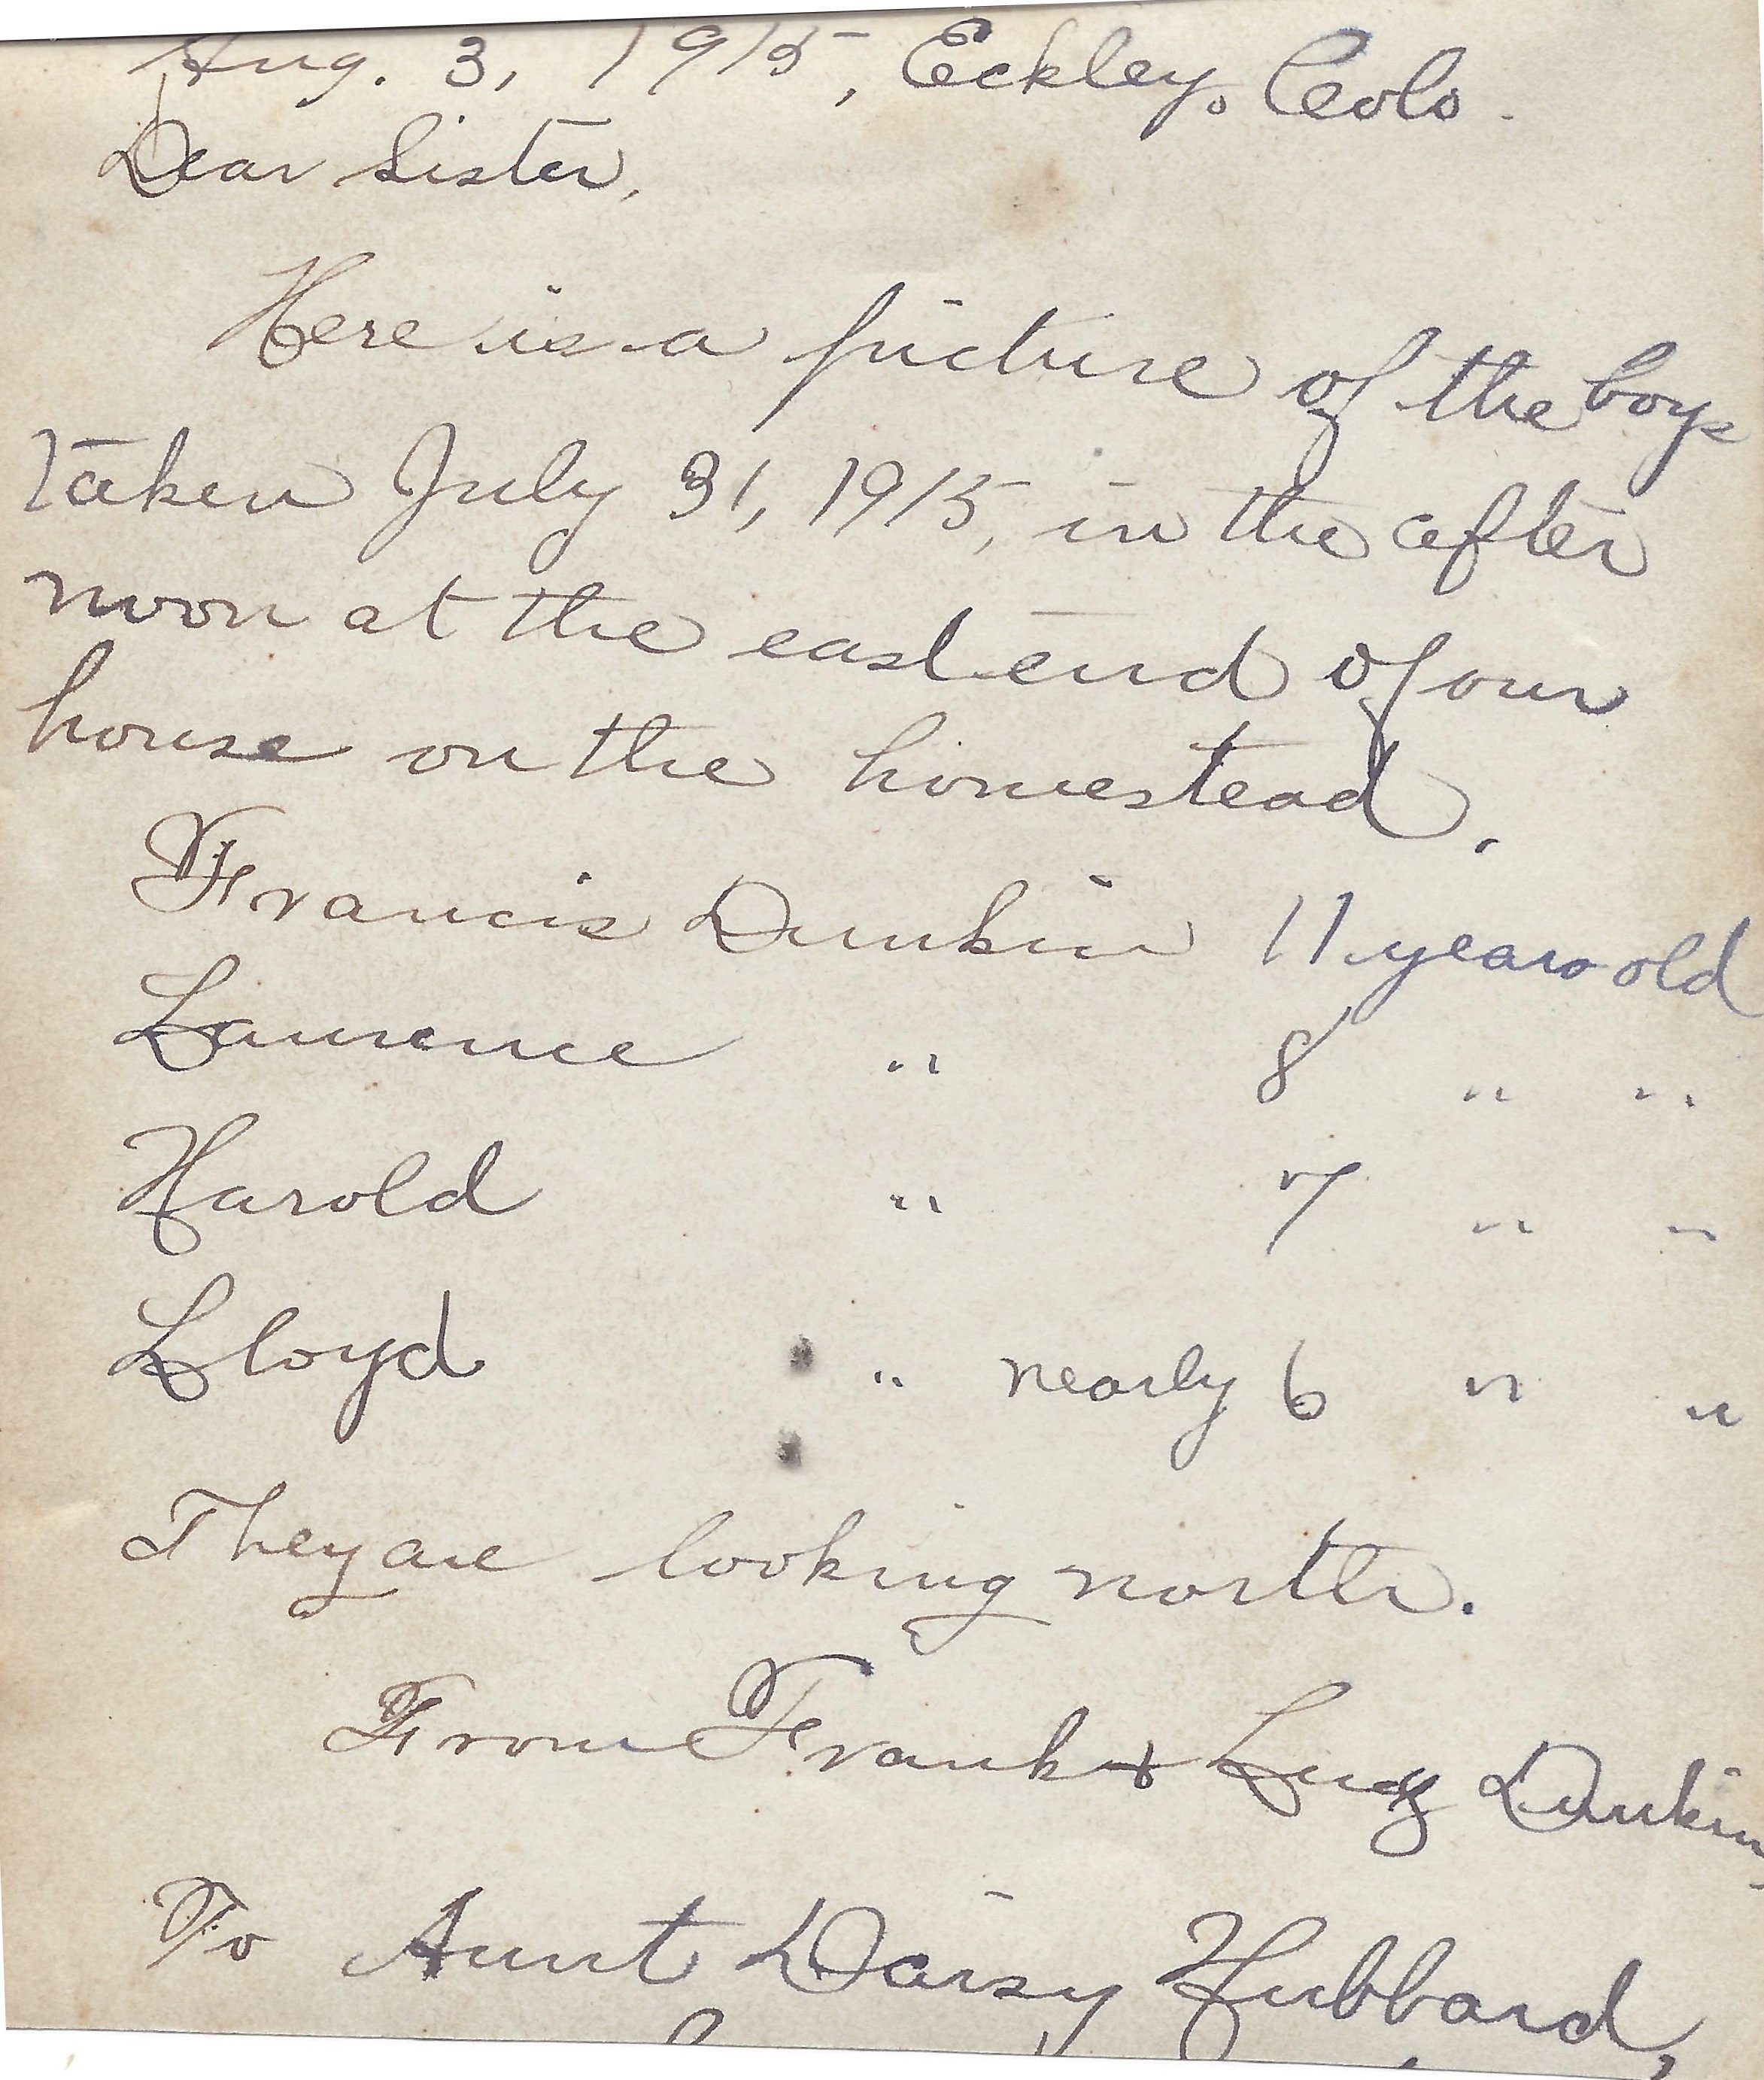 Aug. 3, 1915, Eckley, Colo.
Dear Sister,
Here is a picture of the boys
taken July 31, 1915, in the after
noon at the east end of our
house on the homestead.
Francis Dunkin 11 years old
Laurence " 8 " "
Harold " 7 " "
Lloyd " nearly 6 " "
They are looking north.
From Frank & Lucy Dunkin,
To Aunt Daisy Hubbard,